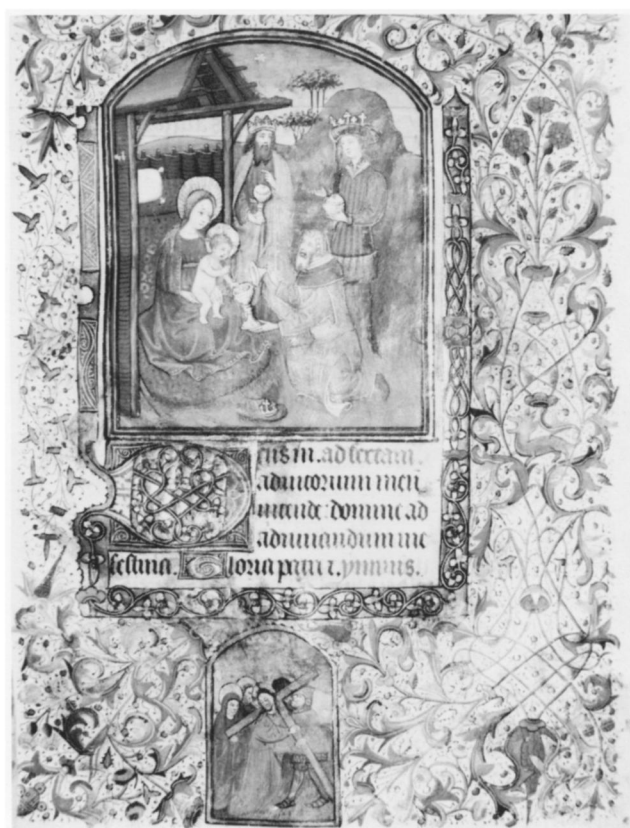 Deus in. ad sextam
adiutorium meū
intende domine ad
adiuuandum me
festina. Gloria patri. ymnus.